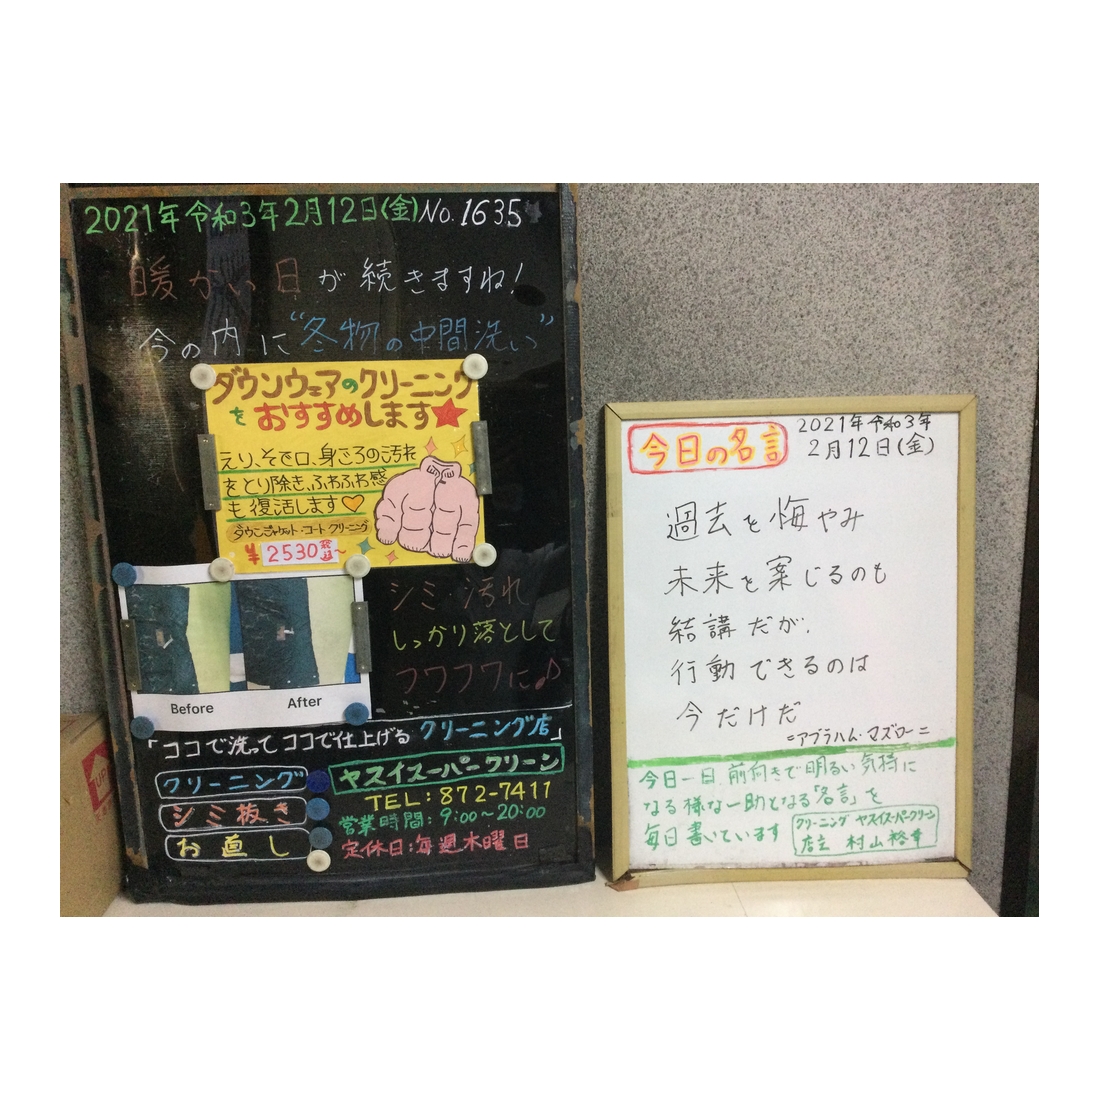 2021年 令和3年2月12日(金)No.1635
暖かい日が続きますね!
今の内に“冬物の中間洗い”
ダウンウェアのクリーニング
をおすすめします★
えり、そで口、身ごろの汚れ
をとり除き、ふわふわ感
も復活します♡
ダウンジャケット・コートクリーニング
¥2530税込~
Before After
シミ・汚れ
しっかり落として
フワフワに♪
「ココで洗ってココで仕上げるクリーニング店」
クリーニング
シミ抜き
お直し
ヤスイスーパークリーン
TEL:872-7411
営業時間:9:00~20:00
定休日:毎週木曜日
UP
今日の名言
2021年令和3年
2月12日(金)
過去を悔やみ
未来を案じるのも
結講だが.
行動できるのは
今だけだ
=アブラハム・マズロー=
今日一日、前向きで明るい気持に
なる様な一助となる「名言」を
毎日書いています
クリーニング ヤスイスーパークリーン
店主 村山裕幸